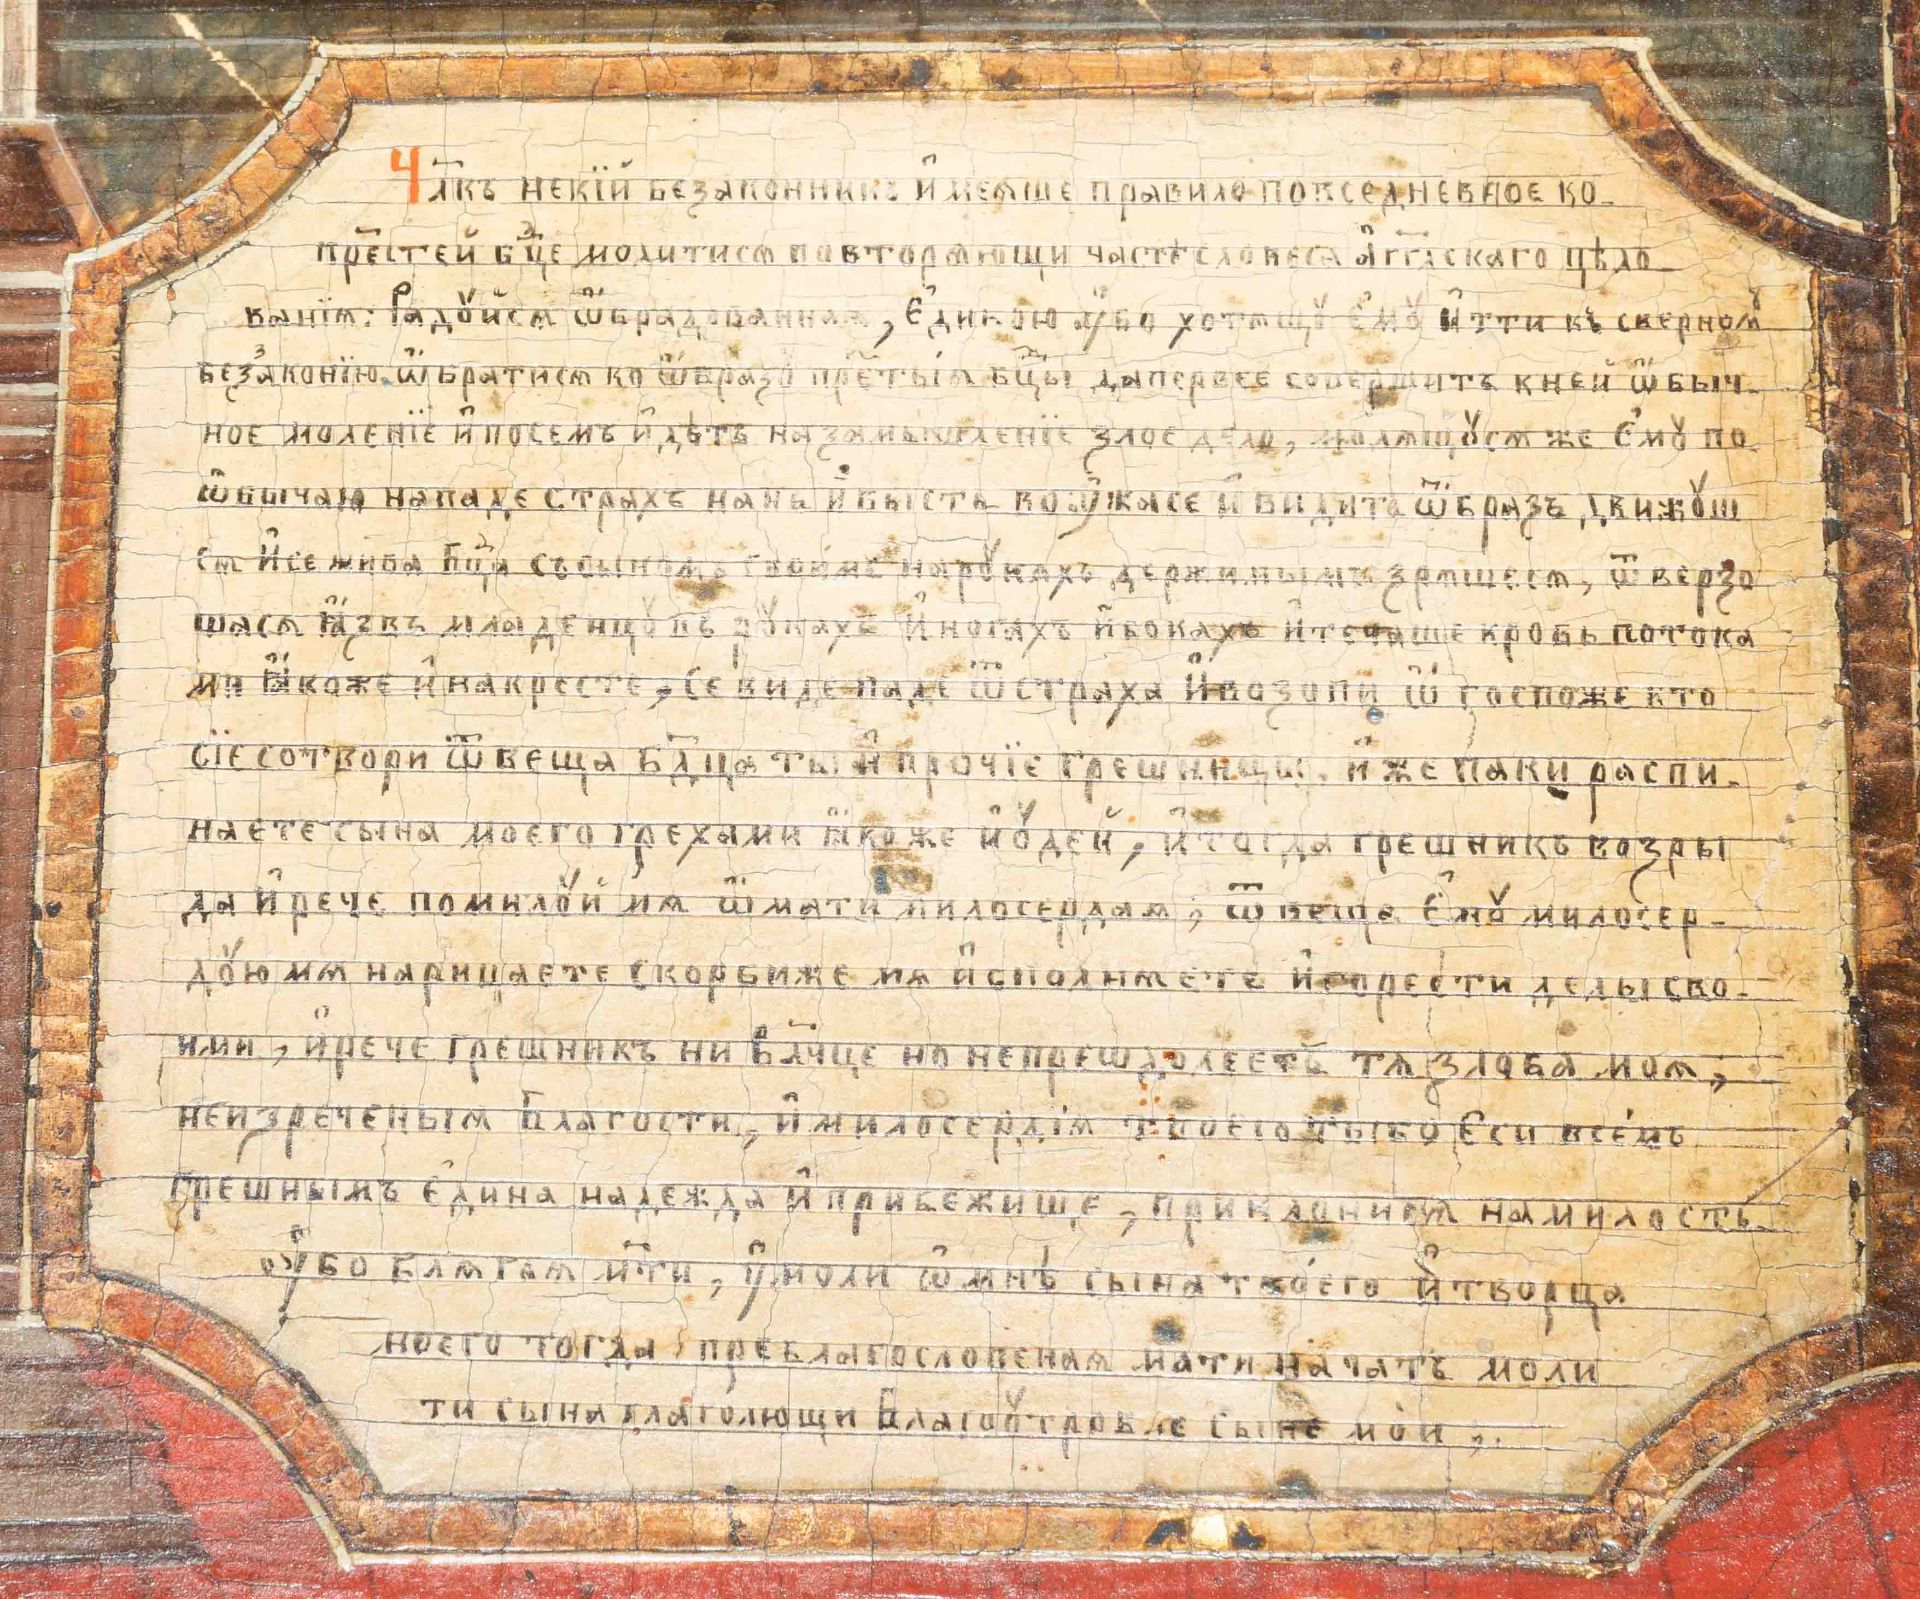 Члкъ некїй беззаконникъ и҆меяше правило повседневное ко
престей бц҃е молитися повторяющи частѣ словеса а҆гг҃лскаго цѣло
ванїя: Радꙋйся ѡ҆брадованная, є҆диною ᲂу҆бо хотящꙋ є҆мꙋ и҆тти къ скверномꙋ
беззаконїю ѡ҆братися ко ѡ҆бразꙋ прет҃ыя бц҃ы да первее совершитъ к ней ѡ҆быч
ное моленїе и҆ посемъ и҆дѣтъ на замышленїе злое дело, молящꙋся же є҆мꙋ по
ѡ҆бычаю нападе страхъ нань и҆ бысть во ᲂу҆жасе и҆ видитъ ѡ҆бразъ движꙋщ
ся и҆ се жива бц҃а съ сыномъ своимъ на рꙋкахъ держимымъ зрящеся, ѿверзо
шася ꙗ҆звъ младенцꙋ въ рꙋкахъ и҆ ногахъ и҆ бокахъ и҆ течаше кровь потока
ми ꙗ҆коже и҆ на кресте, Се виде паде ѿ страха и҆ возопи ѡ҆ госпоже кто
сїе сотвори ѿвеща бд҃ца ты и҆ прочїе грешницы. и҆же паки распи
наете сына моего грехами ꙗ҆коже и҆ꙋдей, и҆ тогда грешникъ возры
да и҆ рече помилꙋй мя ѡ҆ мати милосердая, ѿвеща є҆мꙋ милосер
дꙋю мя нарицаете скорбиже мя и҆сполняете и҆ горести делы сво
ими, и҆ рече грешникъ ни влч҃це но не преѡдолеетъ тя злоба моя,
неизреченыя благости, и҆ милосердїя твоего ты бо є҆си всемъ
грешнымъ є҆дина надежда и҆ прибежище, приклонися на милость
ᲂу҆бо благая мт҃и, ᲂу҆моли ѡ҆ мнѣ сына твоего и҆ творца
моего тогда преблагословеная мати начатъ моли
ти сына глаголющи благоꙋтробне сыне мой,.